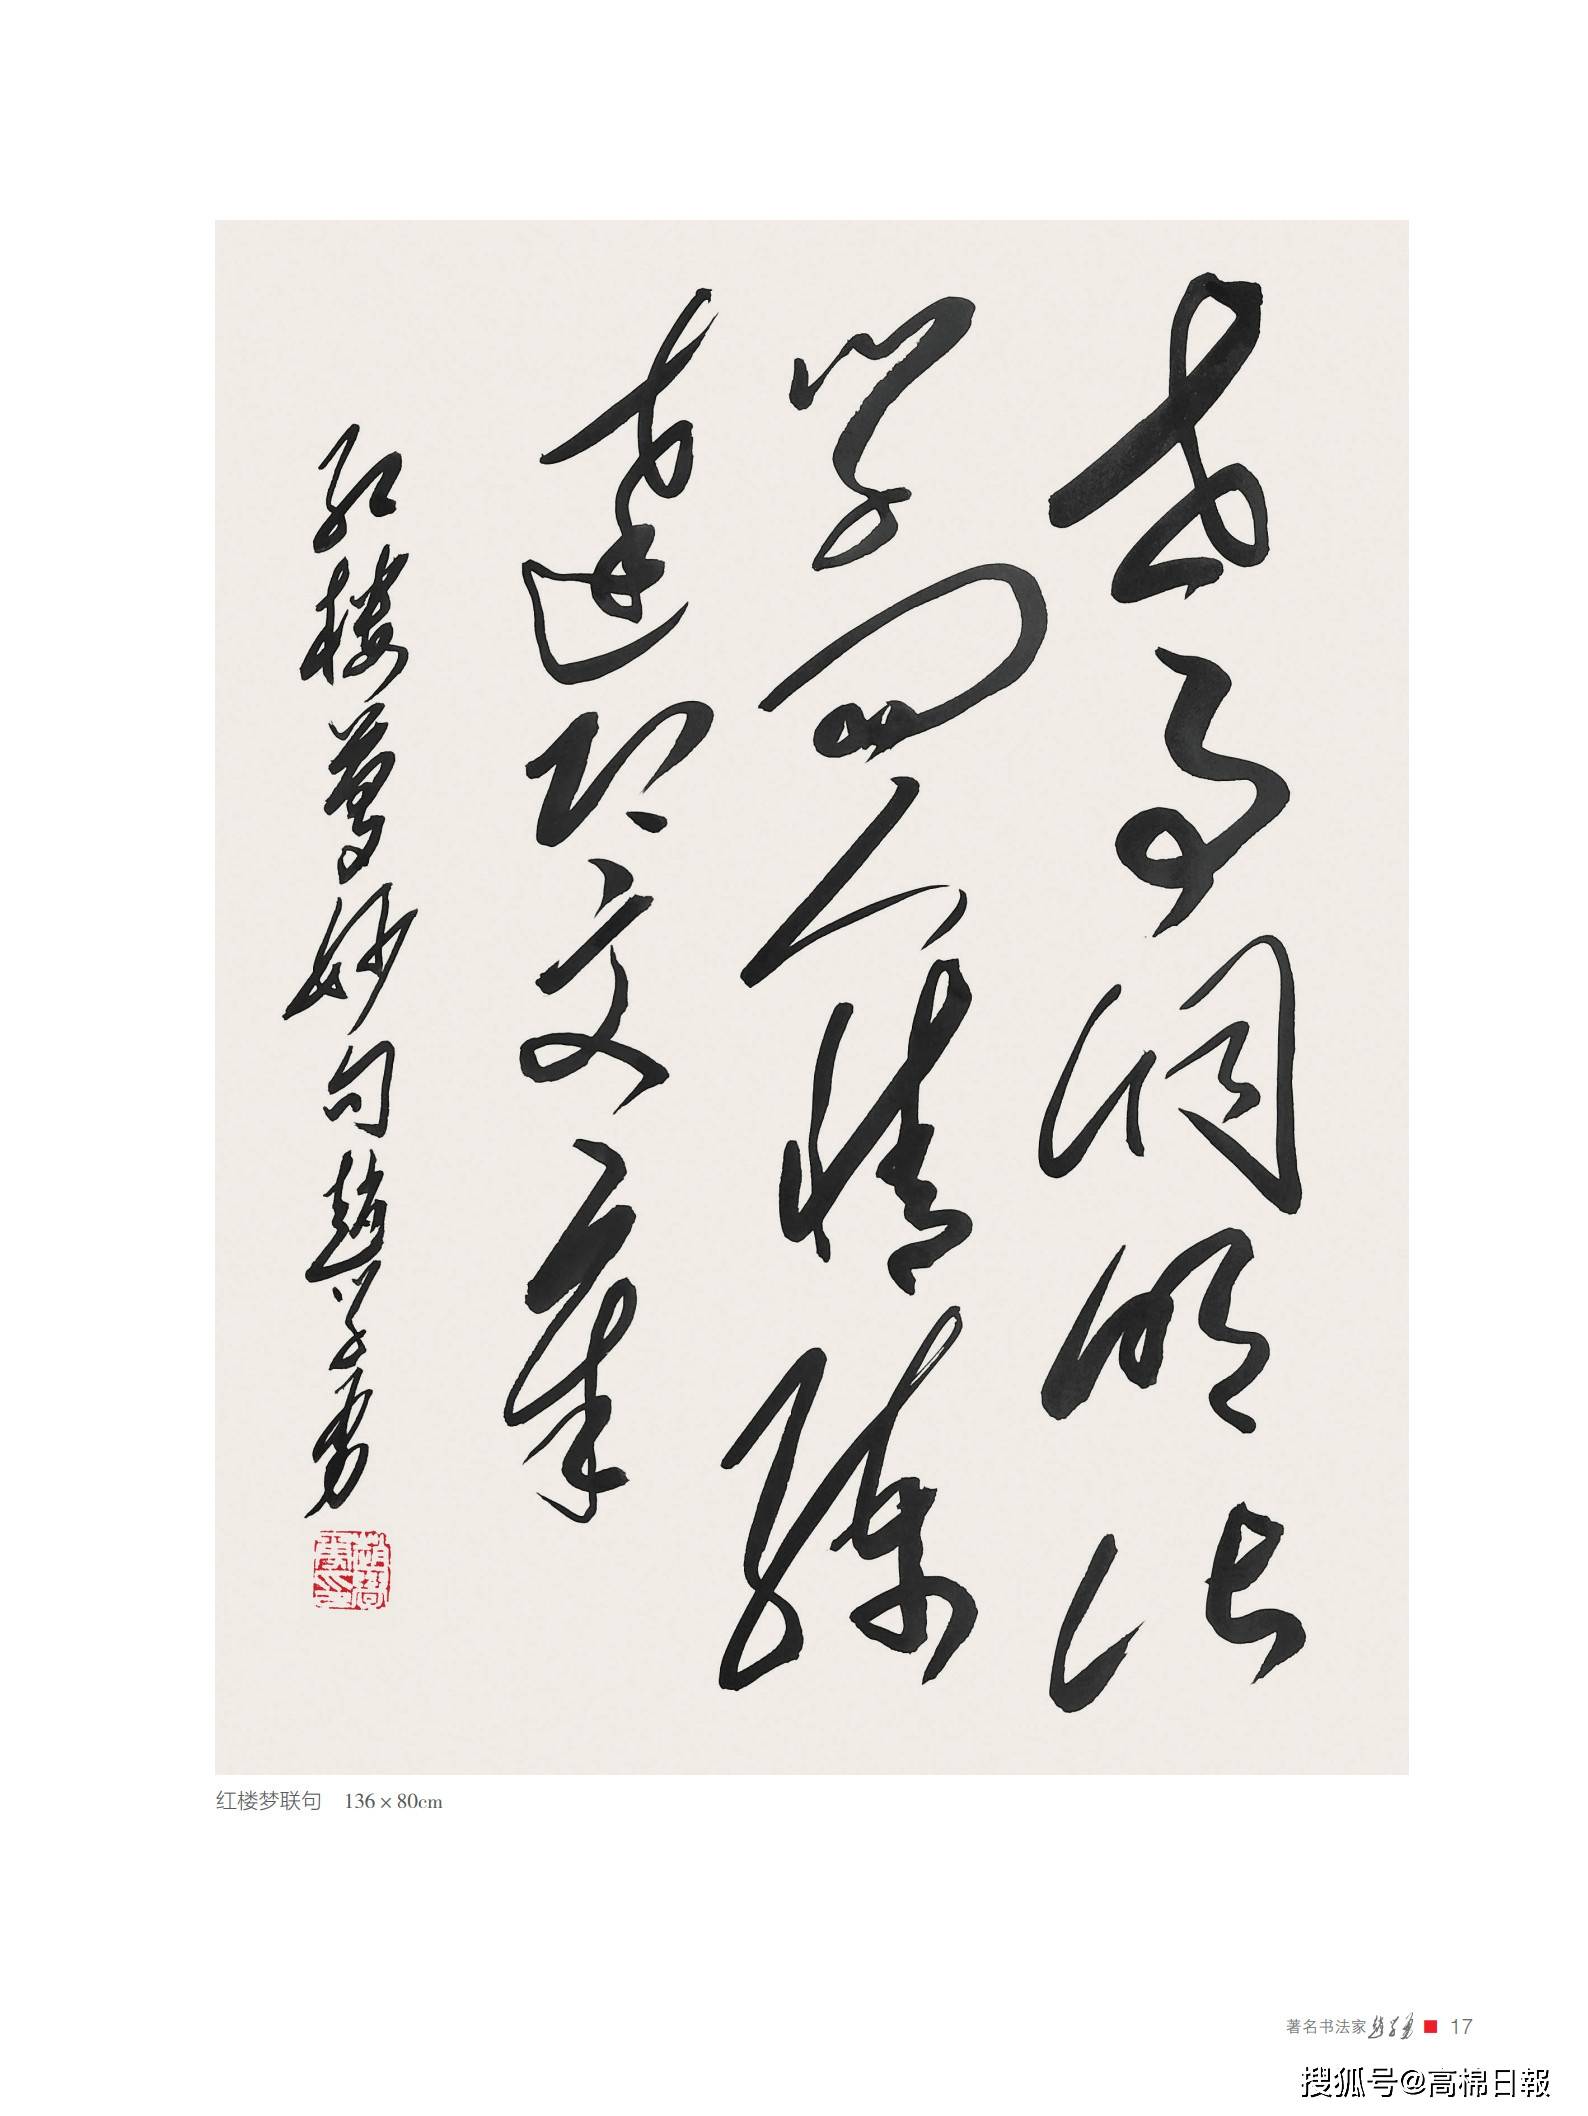 世事洞明皆
学问人情練
達即文章
红楼夢妙句趙学勇
红楼梦联句 136×80cm
著名书法家趙学勇 17
搜狐号@高棉日報